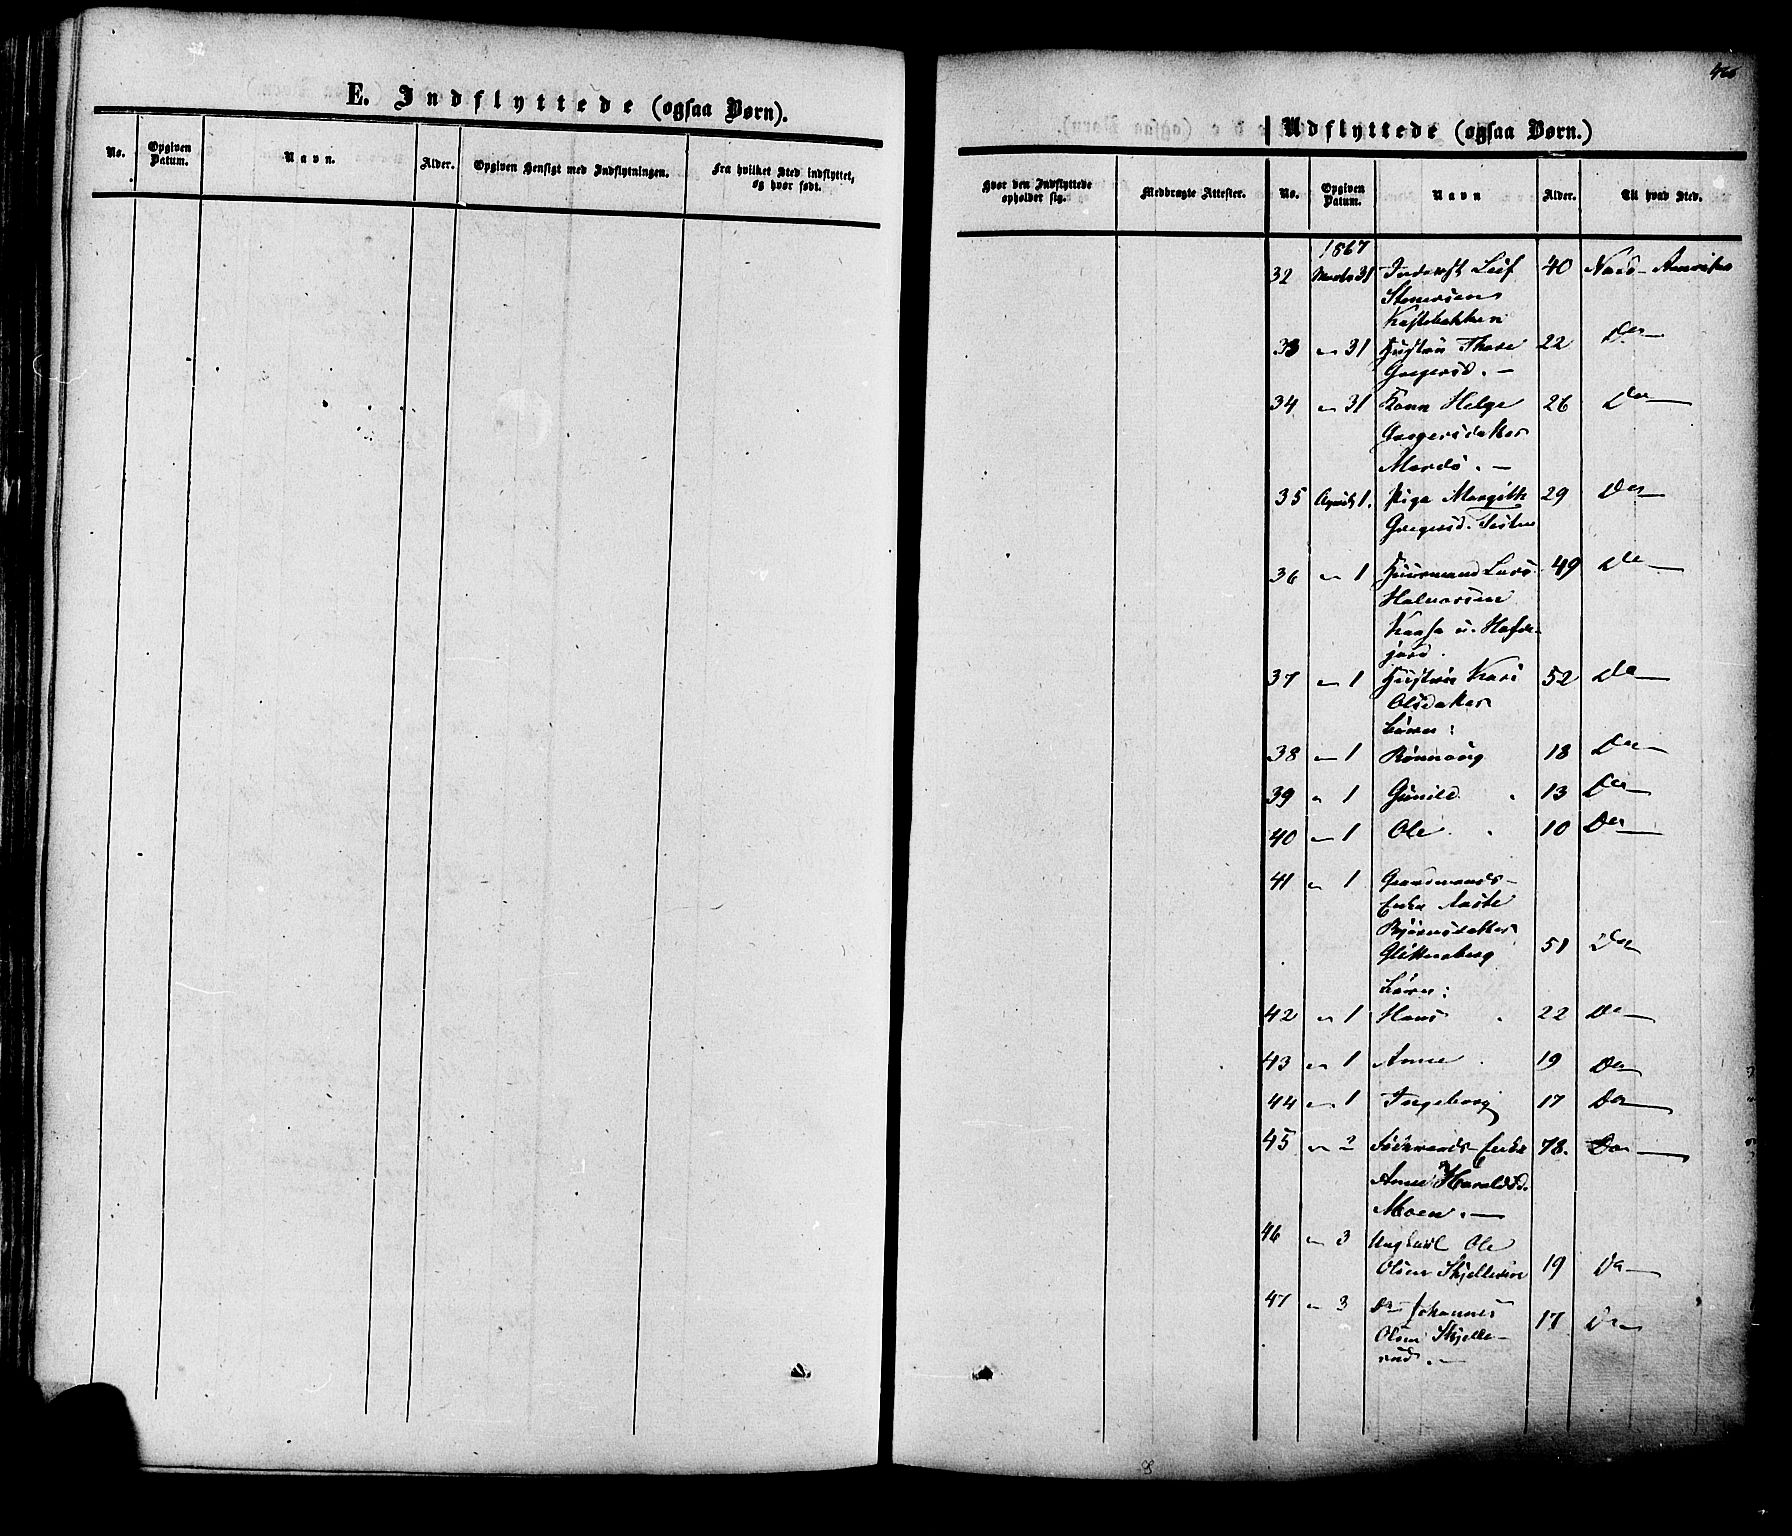 E. Indflyttede (ogsaa Børn).
No.
Opgiven Datum.
Navn.
Alder.
Opgiven Hensigt med Indflytningen.
Fra hvilket Sted indflyttet,
og hvor født.
Udflyttede (ogsaa Børn.)
Hvor den Indflyttede
opholder sig.
Medbragte Attester.
No.
Opgiven Datum.
Navn
Alder.
Til hvad Sted.
1867
32 Marts 31 Leif 40 Nord-Amerika
33 " 31 Hustru Thore 22 Do
Gregersd. -
34 " 31 Kone Helge 26 Do
Gregersdatter
35 April 1. Pige Margith 29 Do
Gregersd.
36 " 1 Huusmand Lars 49 Do
Halvorsen
Kaasa u.
jord.
37 " 1 Hustru Kari 52 Do
Olsdatter
Børn:
38 " 1 Rønnaug 18 Do
39 " 1 Gunild 13 Do
40 " 1 Ole 10 Do
41 " 1 Gaardmands-
Enke Aaste
Bjørnsdatter
51 Do
Børn:
42 " 1 Hans 22 Do
43 " 1 Anne 19 Do
44 " 1 Ingeborg 17 Do
45 " 2 Enke 78. Do
Anne Haraldsd.
Moen. -
46 " 3 Ungkarl Ole
Olsen 19 Do
47 " 3 Do Johannes 17 Do
Olsen Skjelle-
rud. -